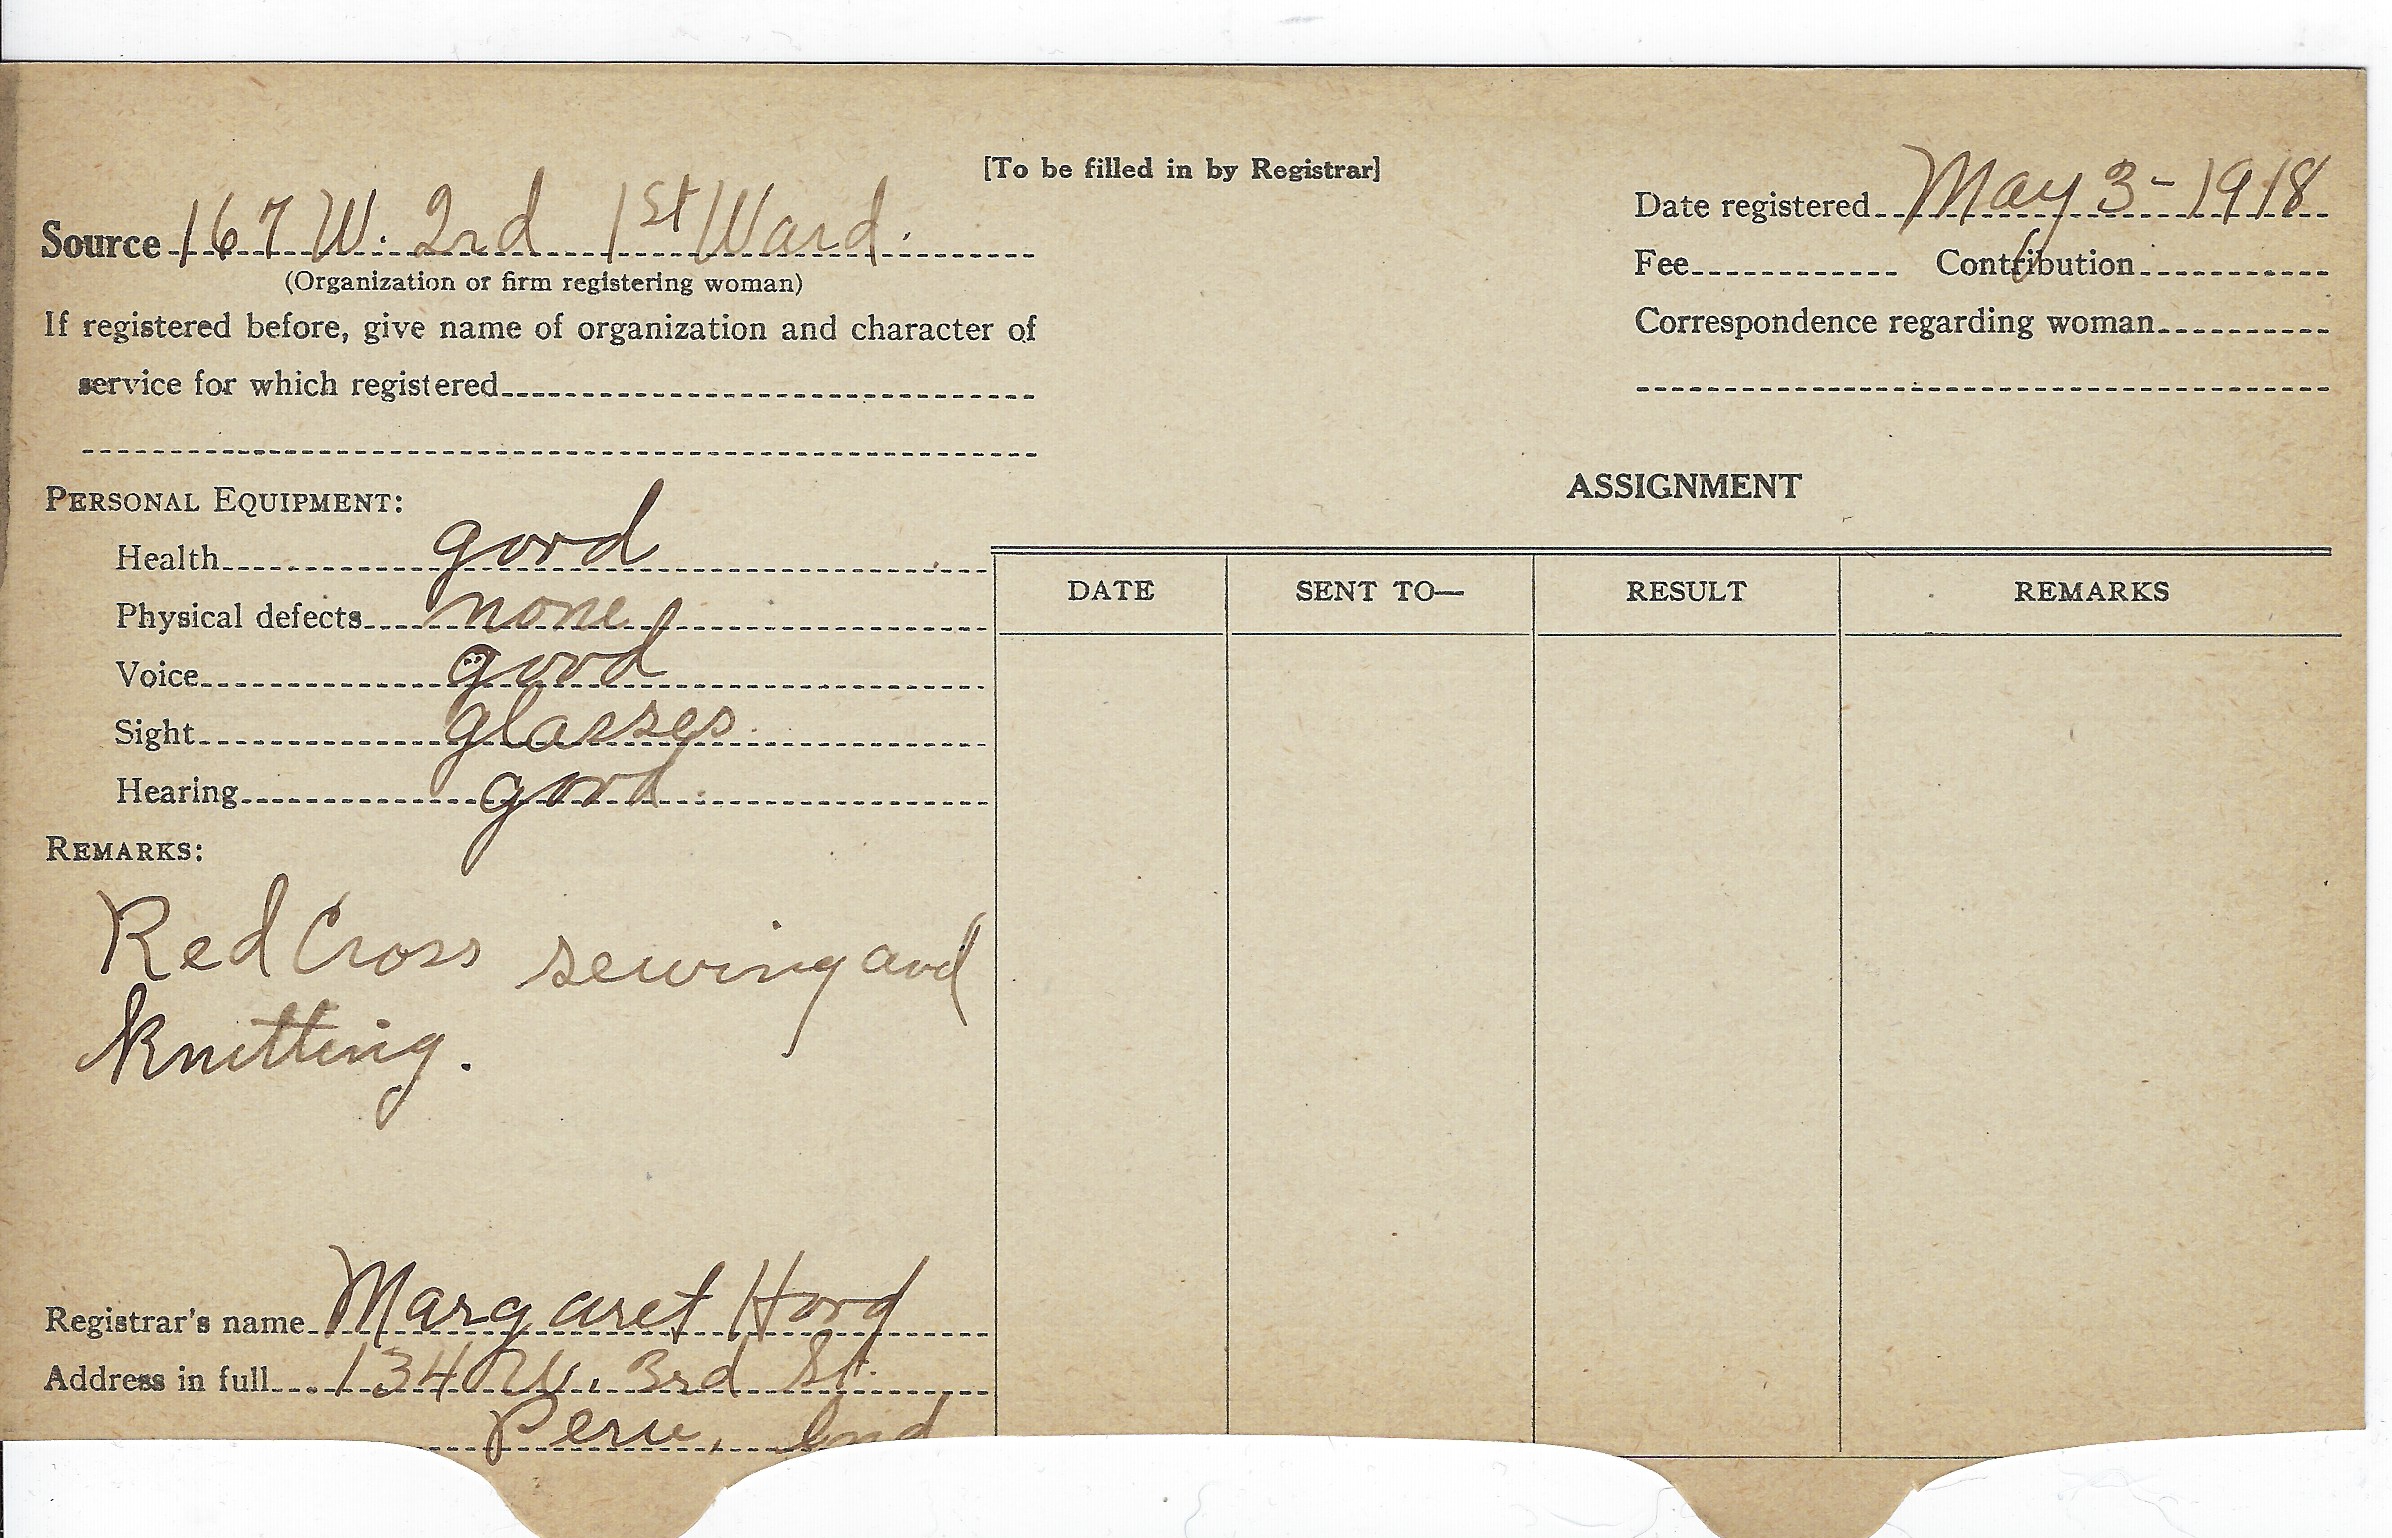 [To be filled in by Registrar]
Source 167 W. 2nd 1st Ward.
(Organization or firm registering woman)
If registered before, give name of organization and character of
service for which registered
Date registered May 3-1918
Fee Contribution
Correspondence regarding woman
PERSONAL EQUIPMENT:
Health good
Physical defects none
Voice good
Sight glasses
Hearing good
REMARKS:
Red Cross sewing and
knitting.
Registrar's name Margaret Hord
Address in full 134 W. 3rd St.
Peru, Ind
ASSIGNMENT
DATE SENT TO— RESULT REMARKS